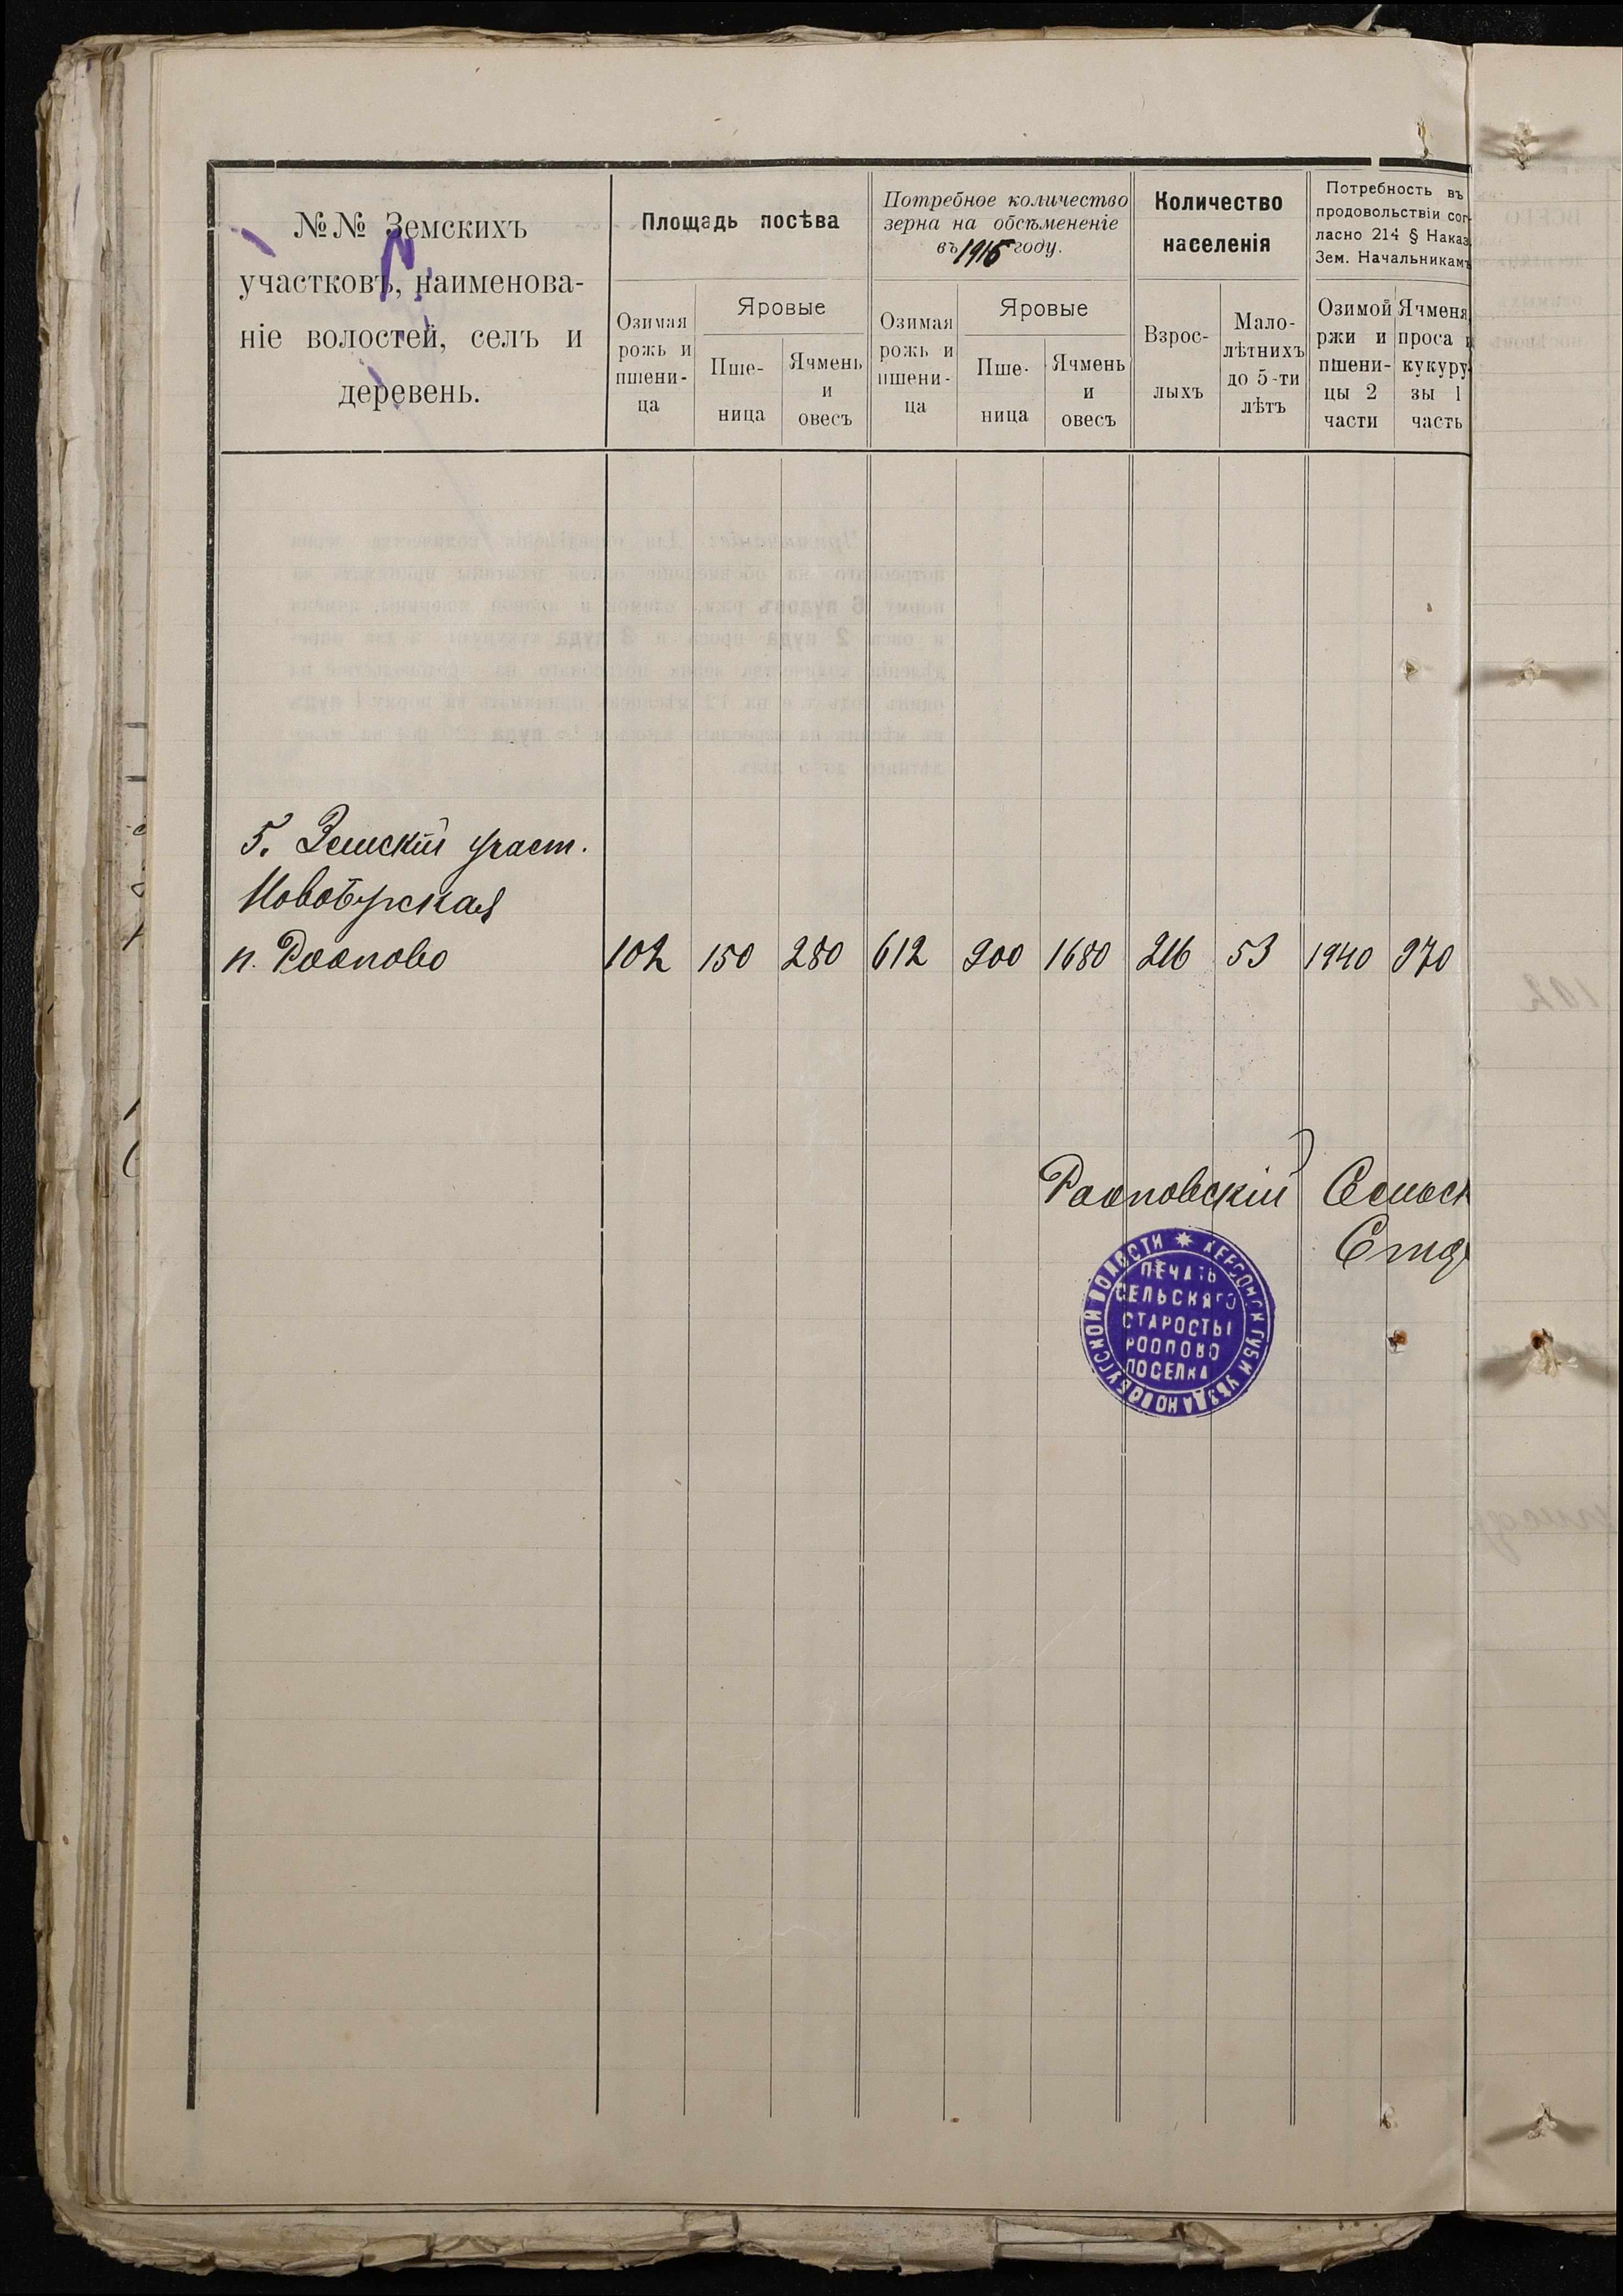 №№ Земскихъ
участковъ, наименова-
ніе волостей, селъ и
деревень.
Площадь посѣва
Озимая
рожь и
пшени-
ца
Яровые
Пше-
ница
Ячмень
и
овесъ
Потребное количество
зерна на обсѣмененіе
въ 1916 году.
Озимая
рожь и
пшени-
ца
Яровые
Пше-
ница
Ячмень
и
овесъ
Количество
населенія
Взрос-
лыхъ
Мало-
лѣтнихъ
до 5-ти
лѣтъ
Потребность въ
продовольствіи сог-
ласно 214 § Наказ
Зем. Начальникамъ
Озимой
ржи и
пшени-
цы 2
части
Ячменя
проса и
кукуру
зы 1
часть
5. Земскій участ.
Новобугская
п. Роопово 102 150 280 612 900 1680 216 53 1940 970
Рооповскій Сельск
Ста
НОВОБУГСКОЙ ВОЛОСТИ * ХЕРСОНСК ГУБ И УѢЗДА
ПЕЧАТЬ
СЕЛЬСКАГО
СТАРОСТЫ
РООПОВО
ПОСЕЛКА